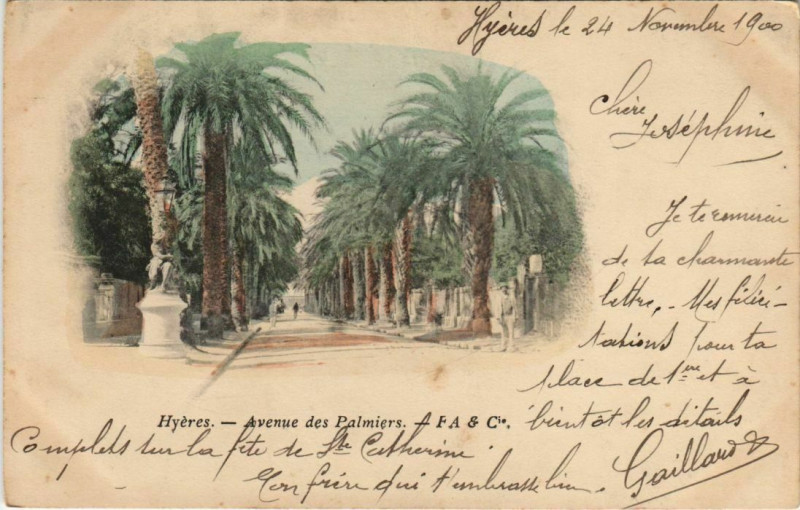 Hyères le 24 Novembre 1900
chère
Joséphine
Je te remercie
de ta charmante
lettre. Mes félici-
tations pour ta
place de 1ère et à
bientôt les détails
Complets sur la fête de Ste Catherine
Ton frère qui t'embrasse bien.
Gaillard
Hyères. — Avenue des Palmiers. — FA & Cie.